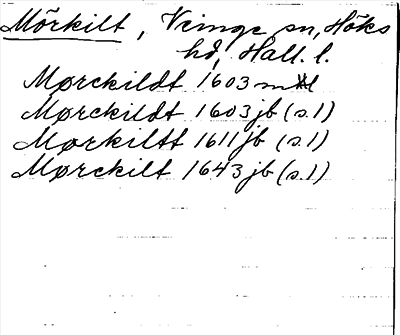 Mörkilt, Veinge sn, Höks
hd, Hall. l.
Mørckildt 1603 mtl
Mørckildt 1603 jb (s.1)
Mørkiltt 1611 jb (s.1)
Mørckilt 1643 jb (s.1)